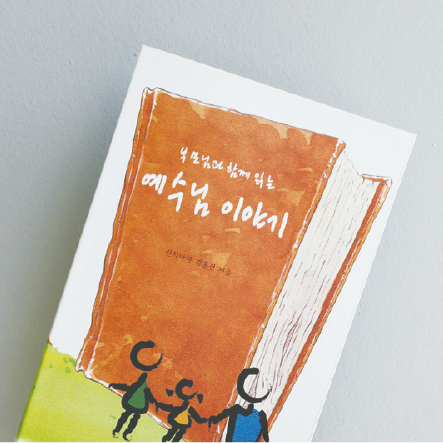 부모님과 함께 읽는
예수님 이야기